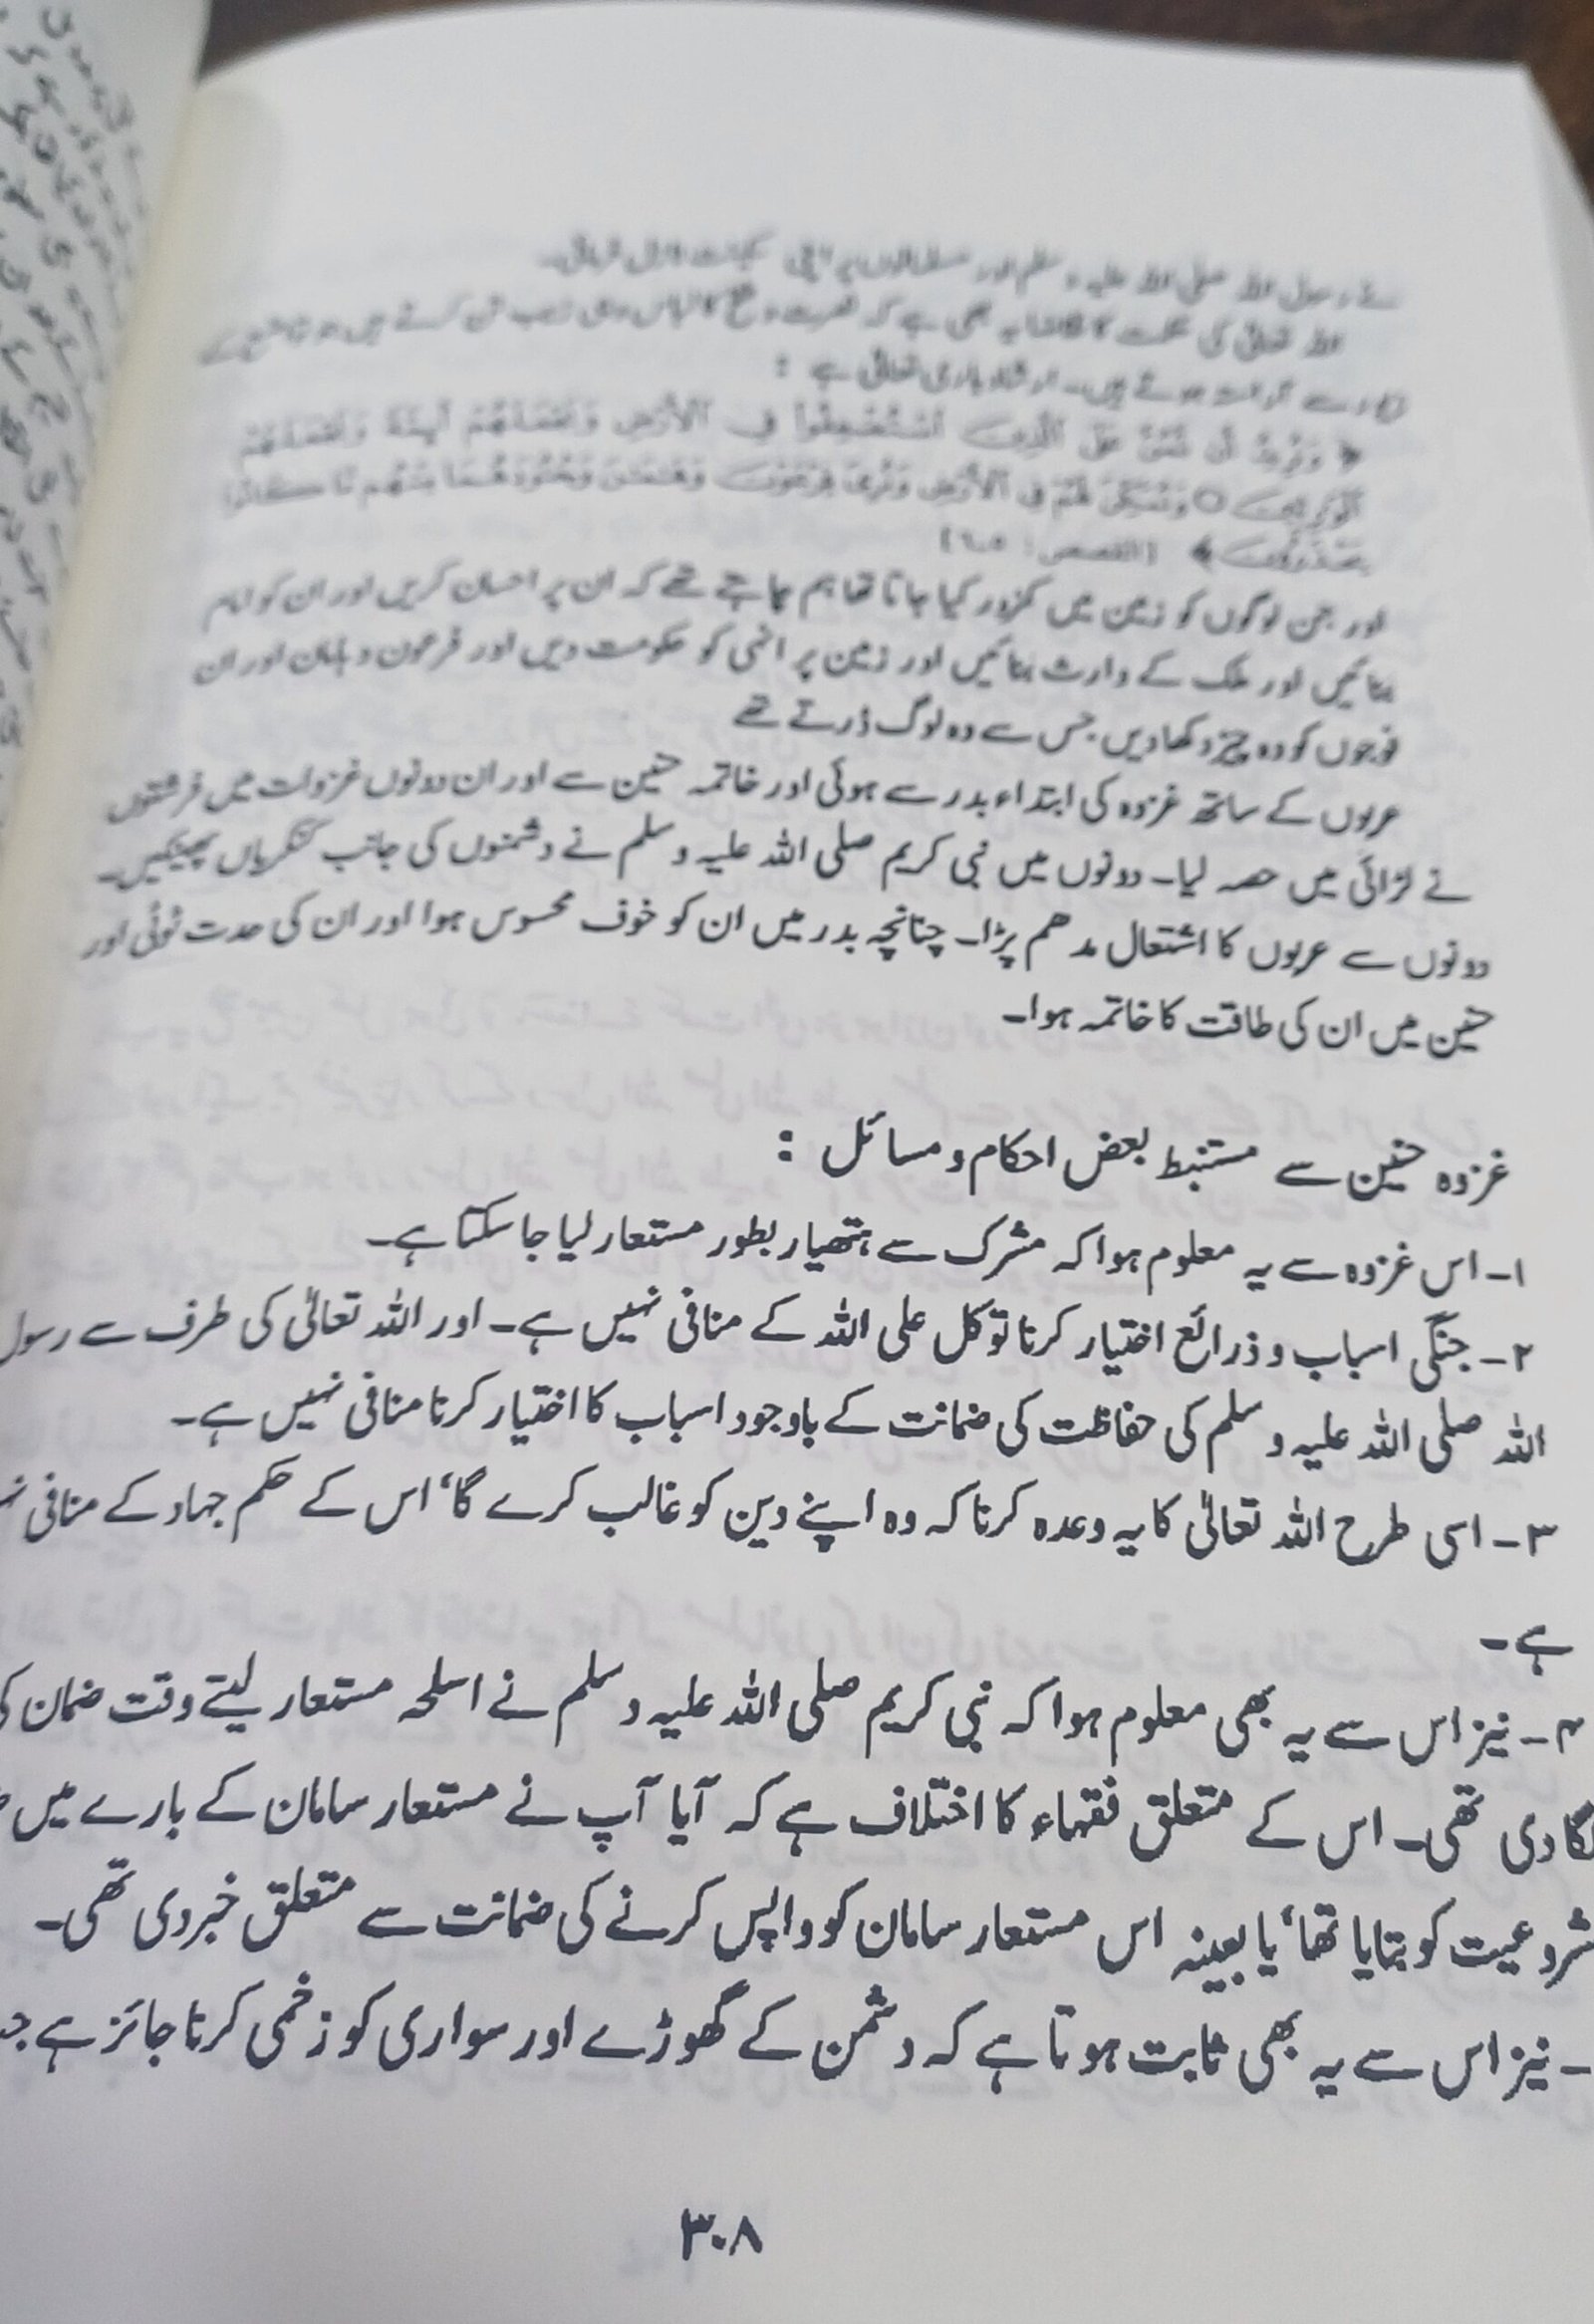 نے رسول اللہ صلی اللہ علیہ وسلم اور مسلمانوں پر اپنی سکینت نازل فرمائی۔
اللہ تعالیٰ کی حکمت کا تقاضا یہ بھی ہے کہ نصرت و فتح کا لباس وہی زیب تن کرتے ہیں جو تواضع کے
سے آراستہ ہوتے ہیں۔ ارشاد باری تعالیٰ ہے :
﴿ وَنُرِيدُ أَن نَّمُنَّ عَلَى الَّذِينَ اسْتُضْعِفُوا فِي الْأَرْضِ وَنَجْعَلَهُمْ أَئِمَّةً وَنَجْعَلَهُمُ
الْوَارِثِينَ ○ وَنُمَكِّنَ لَهُمْ فِي الْأَرْضِ وَنُرِيَ فِرْعَوْنَ وَهَامَانَ وَجُنُودَهُمَا مِنْهُم مَّا كَانُوا
يَحْذَرُونَ ﴾ [القصص: ٥۔٦]
اور جن لوگوں کو زمین میں کمزور کیا جاتا تھا ہم چاہتے تھے کہ ان پر احسان کریں اور ان کو امام
بنائیں اور ملک کے وارث بنائیں اور زمین پر انہی کو حکومت دیں اور فرعون و ہامان اور ان
فوجوں کو وہ چیز دکھا دیں جس سے وہ لوگ ڈرتے تھے
عربوں کے ساتھ غزوہ کی ابتداء بدر سے ہوئی اور خاتمہ حنین سے اور ان دونوں غزوات میں فرشتوں
نے لڑائی میں حصہ لیا۔ دونوں میں نبی کریم صلی اللہ علیہ وسلم نے دشمنوں کی جانب کنکریاں پھینکیں۔
دونوں سے عربوں کا اشتعال مدھم پڑا۔ چنانچہ بدر میں ان کو خوف محسوس ہوا اور ان کی حدت ٹوٹی اور
حنین میں ان کی طاقت کا خاتمہ ہوا۔
غزوہ حنین سے مستنبط بعض احکام و مسائل :
۱۔ اس غزوہ سے یہ معلوم ہوا کہ مشرک سے ہتھیار بطور مستعار لیا جا سکتا ہے۔
۲۔ جنگی اسباب و ذرائع اختیار کرنا توکل علی اللہ کے منافی نہیں ہے۔ اور اللہ تعالیٰ کی طرف سے رسول
اللہ صلی اللہ علیہ وسلم کی حفاظت کی ضمانت کے باوجود اسباب کا اختیار کرنا منافی نہیں ہے۔
۳۔ اسی طرح اللہ تعالیٰ کا یہ وعدہ کرنا کہ وہ اپنے دین کو غالب کرے گا، اس کے حکم جہاد کے منافی
ہے۔
۴۔ نیز اس سے یہ بھی معلوم ہوا کہ نبی کریم صلی اللہ علیہ وسلم نے اسلحہ مستعار لیتے وقت ضمان کی
لگا دی تھی۔ اس کے متعلق فقہاء کا اختلاف ہے کہ آیا آپ نے مستعار سامان کے بارے میں
شروعیت کو بتایا تھا، یا بعینہ اس مستعار سامان کو واپس کرنے کی ضمانت سے متعلق خبر دی تھی۔
۔ نیز اس سے یہ بھی ثابت ہوتا ہے کہ دشمن کے گھوڑے اور سواری کو زخمی کرنا جائز ہے
۳۰۸